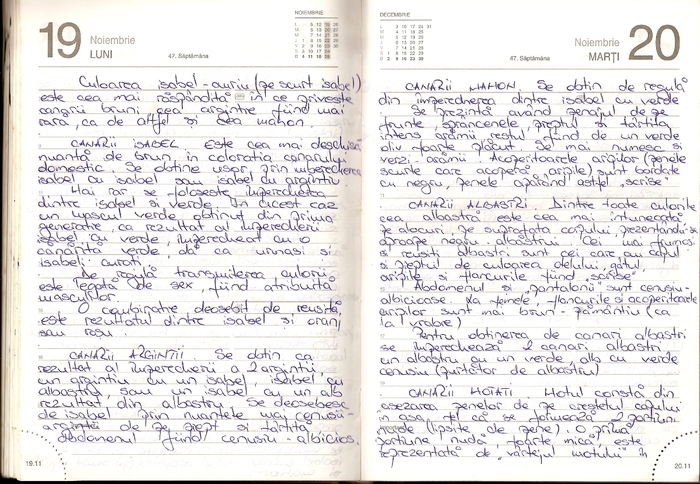 19
Noiembrie
LUNI
47. Săptămâna
NOIEMBRIE
Culoarea isabel-auriu (pe scurt isabel)
este cea mai răspândită în ce privește
canarii bruni, cea argintie fiind mai
rară, ca de altfel și cea mahon.
CANARII ISABEL. Este cea mai deschisă
nuanță de brun, în colorația canarului
domestic. Se obține ușor prin împerecherea
isabel cu isabel sau isabel cu argintiu.
Mai rar se folosește împerecherea
dintre isabel și verde. În acest caz
un mascul verde, obținut din prima
generație, ca rezultat al împerecherii
isabel cu verde, împerecheat cu o
canariță verde, dă ca urmași și
isabeli curați.
De regulă transmiterea culorii
este legată de sex, fiind atribuită
masculilor.
O combinație deosebit de reușită,
este rezultatul dintre isabel și oranj
sau roșu.
CANARII ARGINTII Se obțin ca
rezultat al împerecherii a 2 argintii,
un argintiu cu un isabel, isabel cu
albastru, sau un isabel cu un alb
rezultat din albastru. Se deosebesc
de isabel prin nuanțele mai cenușiu-
argintii de pe piept și târtiță
abdomenul fiind cenușiu-albicios.
19.11
DECEMBRIE
47. Săptămâna
Noiembrie
MARȚI
20
CANARII MAHON. Se obțin de regulă
din împerecherea dintre isabel cu verde
Se prezintă având penajul de pe
frunte, sprâncenele, pieptul și târtița
intens arămii, restul fiind de un verde
oliv foarte plăcut. Se mai numesc și
verzi-arămii. Acoperitoarele aripilor (penele
scurte care acoperă aripile) sunt bordate
cu negru, penele apărând astfel „scrise”
CANARII ALBAȘTRI Dintre toate culorile
cea albastră este cea mai întunecată
pe alocuri, pe suprafața capului prezentându-se
aproape negru albăstrui. Cei mai frumoși
și reușiți albaștri sunt cei care au capul
și pieptul de culoarea oțelului, gâtul,
aripile și flancurile fiind „scrise”
Abdomenul și „pantalonii” sunt cenușiu-
albicioase. La femele, flancurile și acoperitoarele
aripilor sunt mai brun-pământiu (ca
la vrabie)
Pentru obținerea de canari albaștri
se împerechează 2 canari albaștri
un albastru cu un verde, alb cu verde
cenușiu (purtător de albastru)
CANARII MOȚAȚI Moțul constă din
așezarea penelor de pe creștetul capului
în așa fel că se formează 2 porțiuni
nude (lipsite de pene). O primă
porțiune nudă, foarte mică, este
reprezentată de „vârtejul moțului” în
20.11